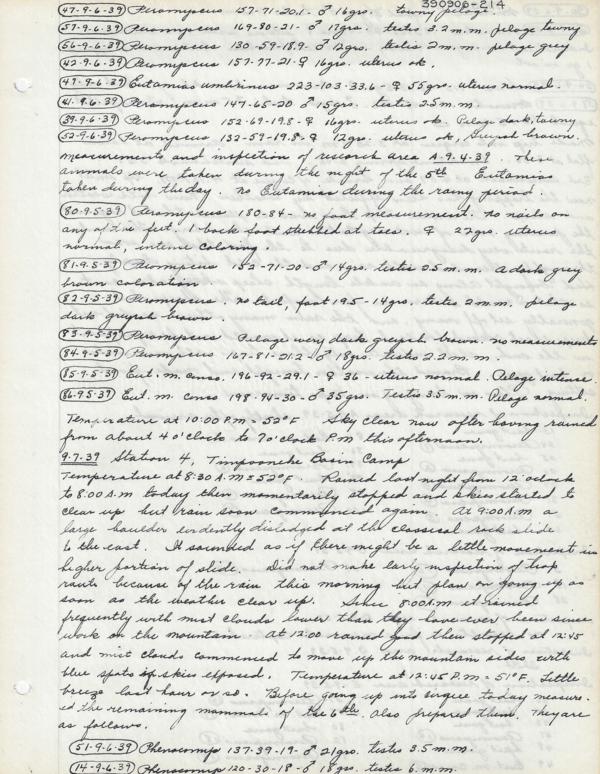 390906-214
47-9-6-39 Peromyscus 157-71-20.1- ♂ 16grs. tawny pelage.
57-9-6-39 Peromyscus 169-80-21- ♂ 17grs. testis 3.2 m.m. pelage tawny
56-9-6-39 Peromyscus 130-59-18.9- ♂ 12grs. testis 2 m.m. pelage grey
42-9-6-39 Peromyscus 157-77-21- ♀ 16grs. uterus ok.
49-9-6-39 Eutamias umbrinus 223-103-33.6- ♀ 55grs. uterus normal.
41-9-6-39 Peromyscus 147-65-20 ♂ 15grs. testis 2.5 m.m.
39-9-6-39 Peromyscus 152-69-19.8- ♀ 16grs. uterus ok. Pelage dark, tawny
52-9-6-39 Peromyscus 132-59-19.8- ♀ 12grs. uterus ok, Greyish brown.
measurements and inspection of research area A-9-4-39. These
animals were taken during the night of the 5th Eutamias
taken during the day. no Eutamias during the rainy period.
80-9-5-39 Peromyscus 180-84- no foot measurement. no nails on
any of the feet. 1-back foot stubbed at toes. ♀ 22grs. uterus
normal, intense coloring.
81-9-5-39 Peromyscus 152-71-20- ♂ 14grs. testis 2.5 m.m. a dark grey
brown coloration.
82-9-5-39 Peromyscus. no tail, foot 19.5-14grs. testes 2 m.m. pelage
dark greyish brown.
83-9-5-39 Peromyscus Pelage very dark greyish brown. no measurements
84-9-5-39 Peromyscus 167-81-21.2- ♂ 18grs. testis 2.2 m.m.
85-9-5-39 Eut. m. conso. 196-92-29.1- ♀ 36- uterus normal. Pelage intense.
86-9-5-39 Eut. m. conso 198-94-30- ♂ 35grs. Testis 3.5 m.m. Pelage normal.
Temperature at 10:00 P.m = 52°F Sky clear now after having rained
from about 4 o'clock to 7 o'clock P.m this afternoon.
9-7-39 Station 4, Timpooneke Basin Camp
Temperature at 8:30 A.m = 52°F. Rained last night from 12 o'clock
to 8:00 A.m today then momentarily stopped and skies started to
clear up but rain soon commenced again. At 9:00 A.m a
large boulder evidently dislodged at the classical rock slide
to the east. It sounded as if there might be a little movement in
higher portion of slide. Did not make early inspection of trap
routs because of the rain this morning but plan on going up as
soon as the weather clear up. Since 8:00 A.m it rained
frequently with mist clouds lower than they have ever been since
work on the mountain. At 12:00 rained good then stopped at 12:45
and mist clouds commenced to move up the mountain sides with
blue spots of skies exposed. Temperature at 12:45 P.m = 51°F. Little
breeze last hour or so. Before going up into cirque today measur-
ed the remaining mammals of the 6th. Also prepared them. They are
as follows.
51-9-6-39 Phenacomys 137-39-19- ♂ 21grs. testis 3.5 m.m.
14-9-6-39 Phenacomys 120-30-18- ♂ 18grs. testes 6. m.m.